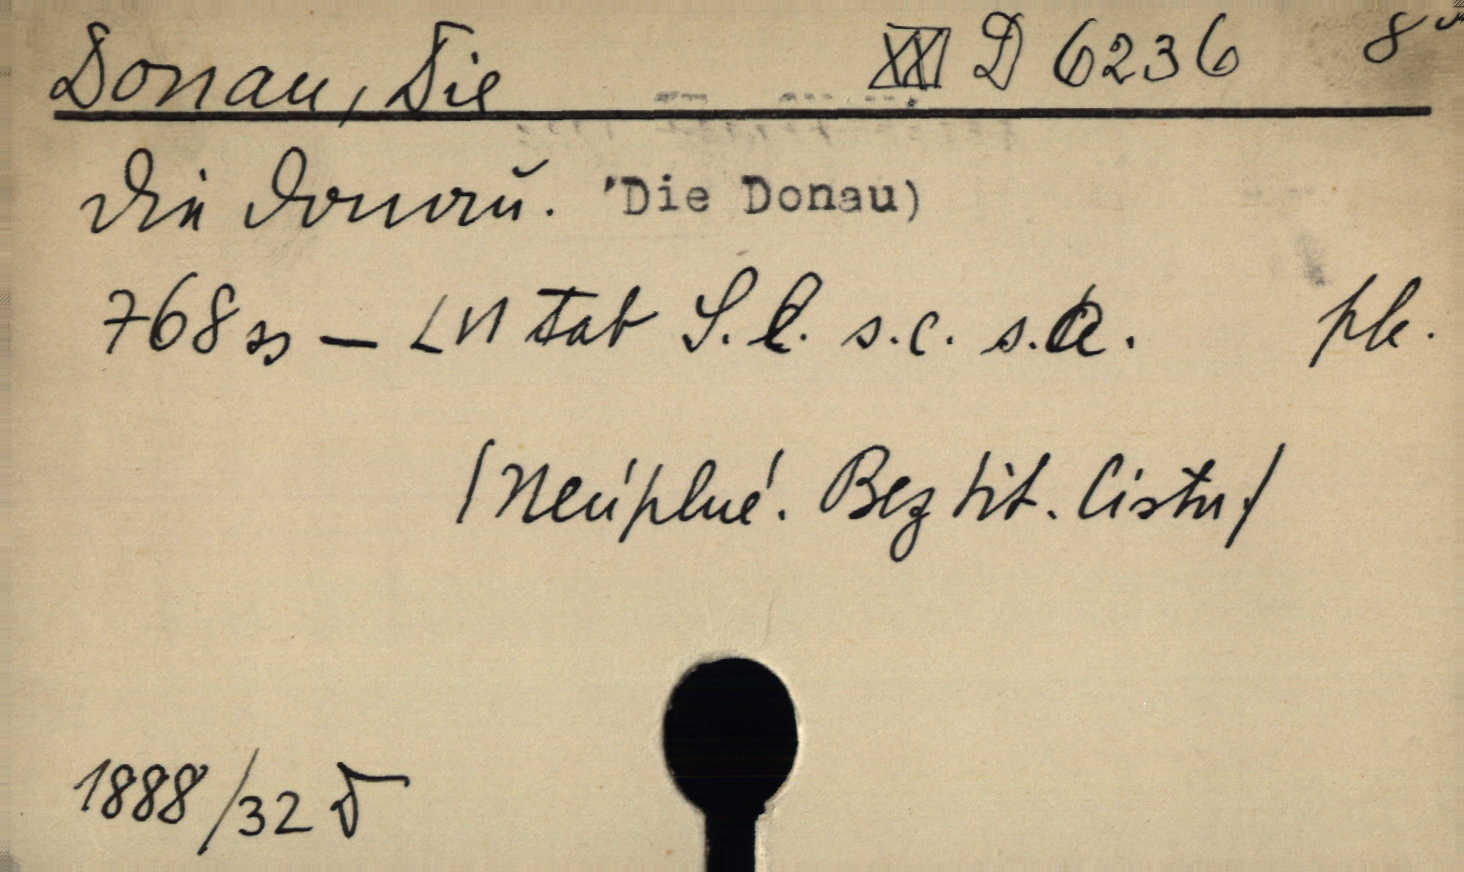 Donau, Die XXI D 6236 8°
Die Donau. (Die Donau)
768 ss — LVI Tab S.l. s.c. s.a. pk.
(Neúplné. Bez tit. listu)
1888/32 D